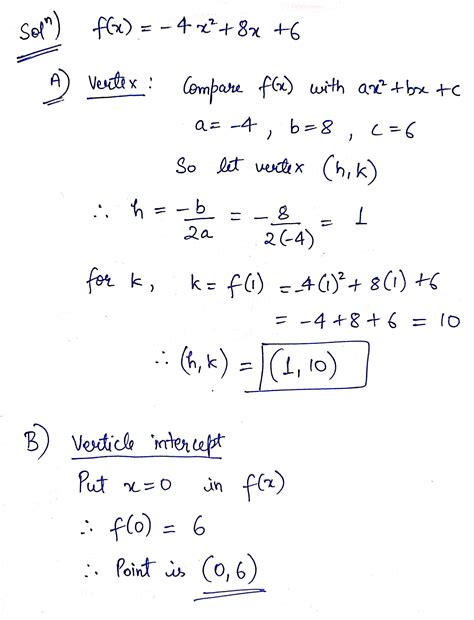 Solⁿ) f(x) = -4x² + 8x + 6
A) Vertex : Compare f(x) with ax² + bx + c
a = -4 , b = 8 , c = 6
So let vertex (h, k)
∴ h = -b/2a = -8/2(-4) = 1
for k, k = f(1) = -4(1)² + 8(1) + 6
= -4 + 8 + 6 = 10
∴ (h, k) = (1, 10)
B) Verticle intercept
Put x = 0 in f(x)
∴ f(0) = 6
∴ Point is (0, 6)